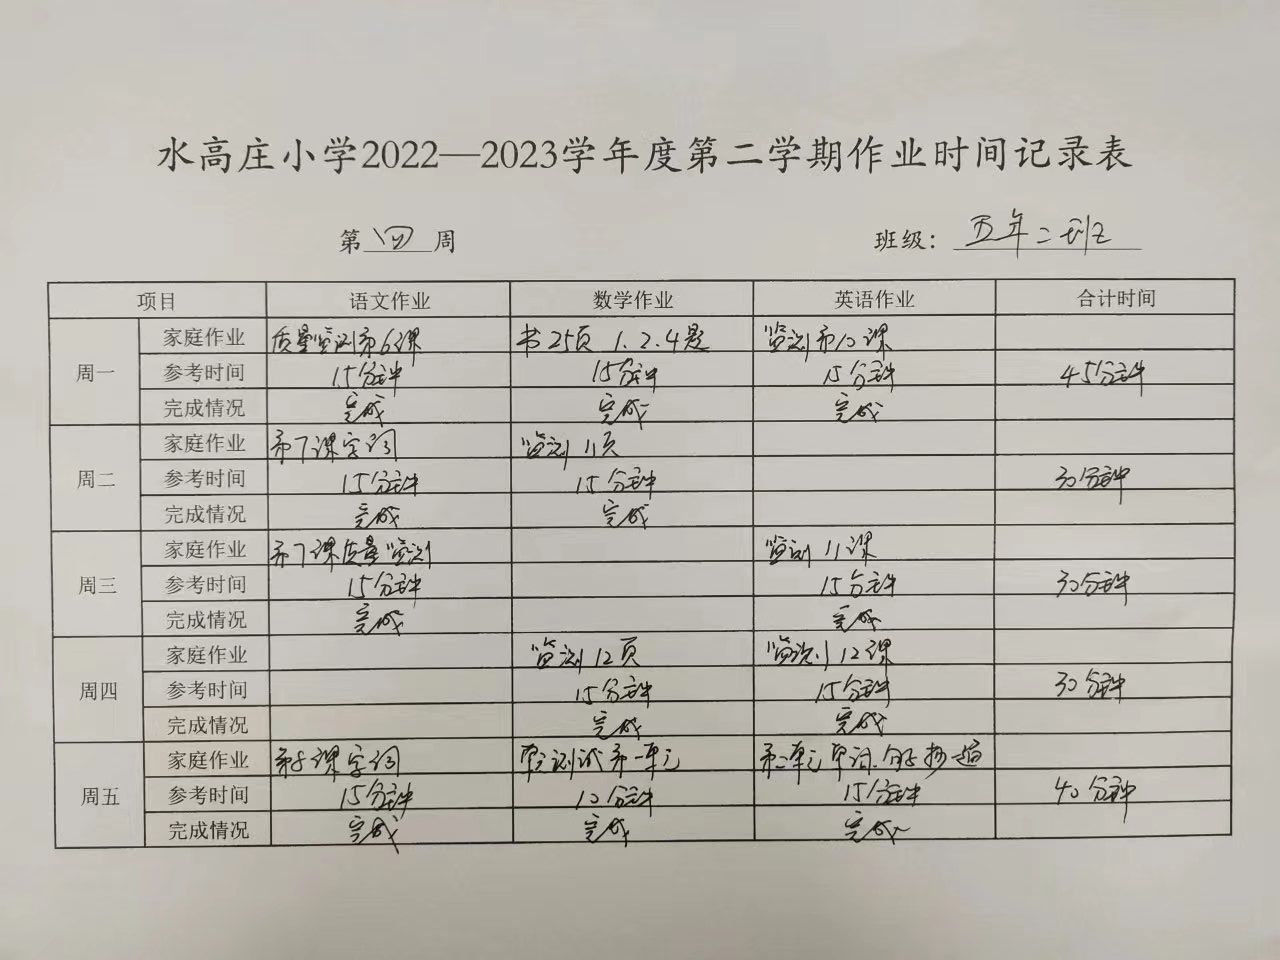 水高庄小学2022—2023学年度第二学期作业时间记录表
第 四 周 班级： 五年二班
项目 语文作业 数学作业 英语作业 合计时间
周一 家庭作业 质量监测第6课 书25页 1.2.4题 监测第10课
参考时间 15分钟 15分钟 15分钟 45分钟
完成情况 完成 完成 完成
周二 家庭作业 第7课字词 监测11页
参考时间 15分钟 15分钟 30分钟
完成情况 完成 完成
周三 家庭作业 第7课质量监测 监测11课
参考时间 15分钟 15分钟 30分钟
完成情况 完成 完成
周四 家庭作业 监测12页 监测12课
参考时间 15分钟 15分钟 30分钟
完成情况 完成 完成
周五 家庭作业 第8课字词 单元测试第一单元 第二单元单词.句子抄一遍
参考时间 15分钟 10分钟 15分钟 40分钟
完成情况 完成 完成 完成